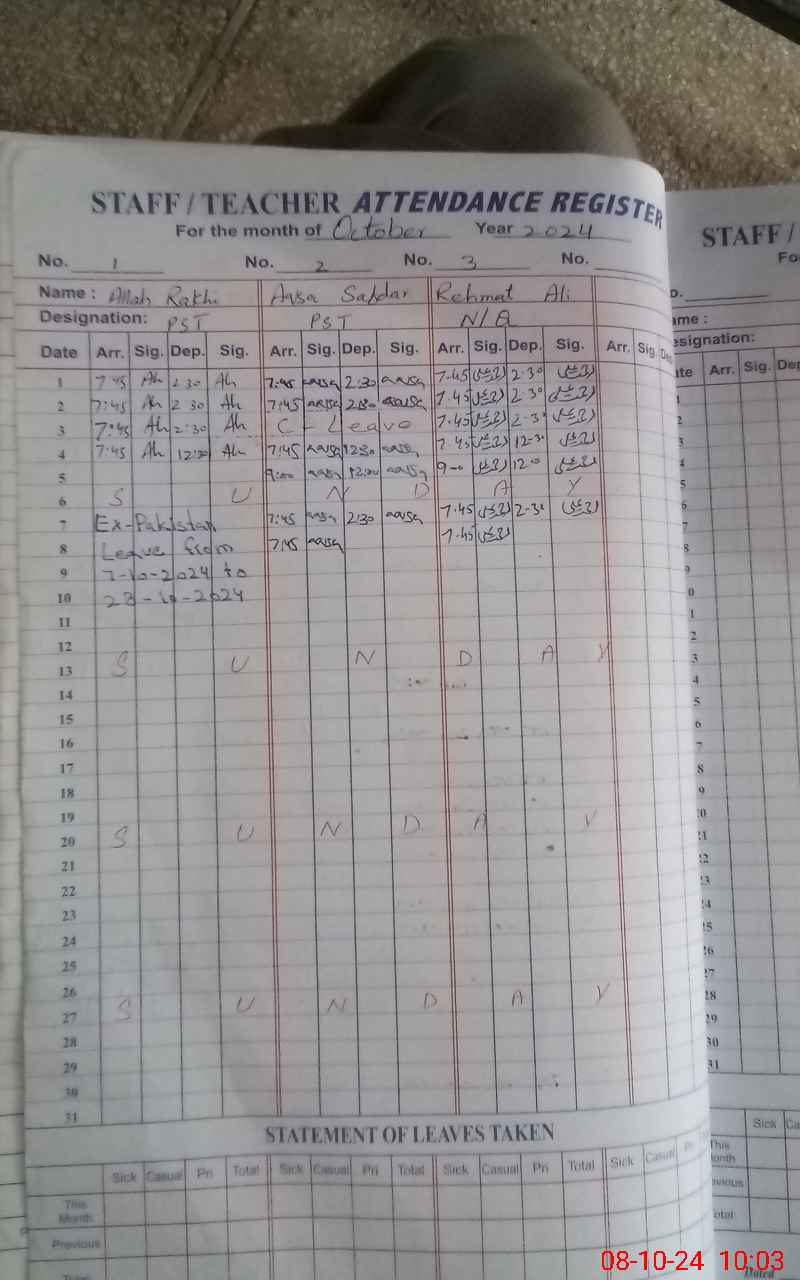 STAFF / TEACHER ATTENDANCE REGISTER
For the month of October Year 2024
No. 1 No. 2 No. 3 No.
Name : Allah Rakhi Aqsa Safdar Rehmat Ali
Designation: PST PST N/Q
Date Arr. Sig. Dep. Sig. Arr. Sig. Dep. Sig. Arr. Sig. Dep. Sig. Arr. Sig.
1 7:45 Ah 2 30 Ah 7:45 aqsa 2:30 aqsa 7.45 2-30
2 7:45 Ah 2 30 Ah 7:45 aqsa 2:30 aqsa 7.45 2-30
3 7:45 Ah 2:30 Ah C - Leave 7.45 2-30
4 7:45 Ah 12:30 Ah 7:45 aqsa 12:30 aqsa 7.45 12-30
5 9:00 aqsa 12:00 aqsa 9-00 12-0
6 S U N D A Y
7 Ex-Pakistan 7:45 aqsa 2:30 aqsa 7.45 2-30
8 Leave from 7:45 aqsa 7.45
9 7-10-2024 to
10 23-10-2024
11
12
13 S U N D A Y
14
15
16
17
18
19
20 S U N D A Y
21
22
23
24
25
26
27 S U N D A Y
28
29
30
31
STATEMENT OF LEAVES TAKEN
Sick Casual Pri Total Sick Casual Pri Total Sick Casual Pri Total Sick Casual
This
Month
Previous
Total
STAFF /
Arr. Sig.
Sick
This
08-10-24 10:03